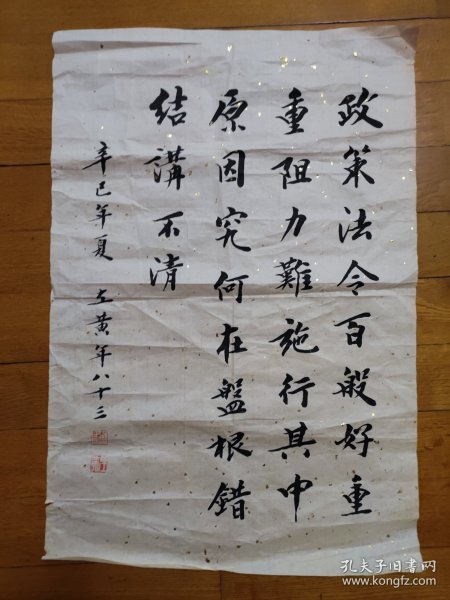 政策法令百般好重
重阻力難施行其中
原因究何在盤根錯
结講不清
辛巳年夏 左黄年八十三
孔夫子旧书网
www.kongfz.com